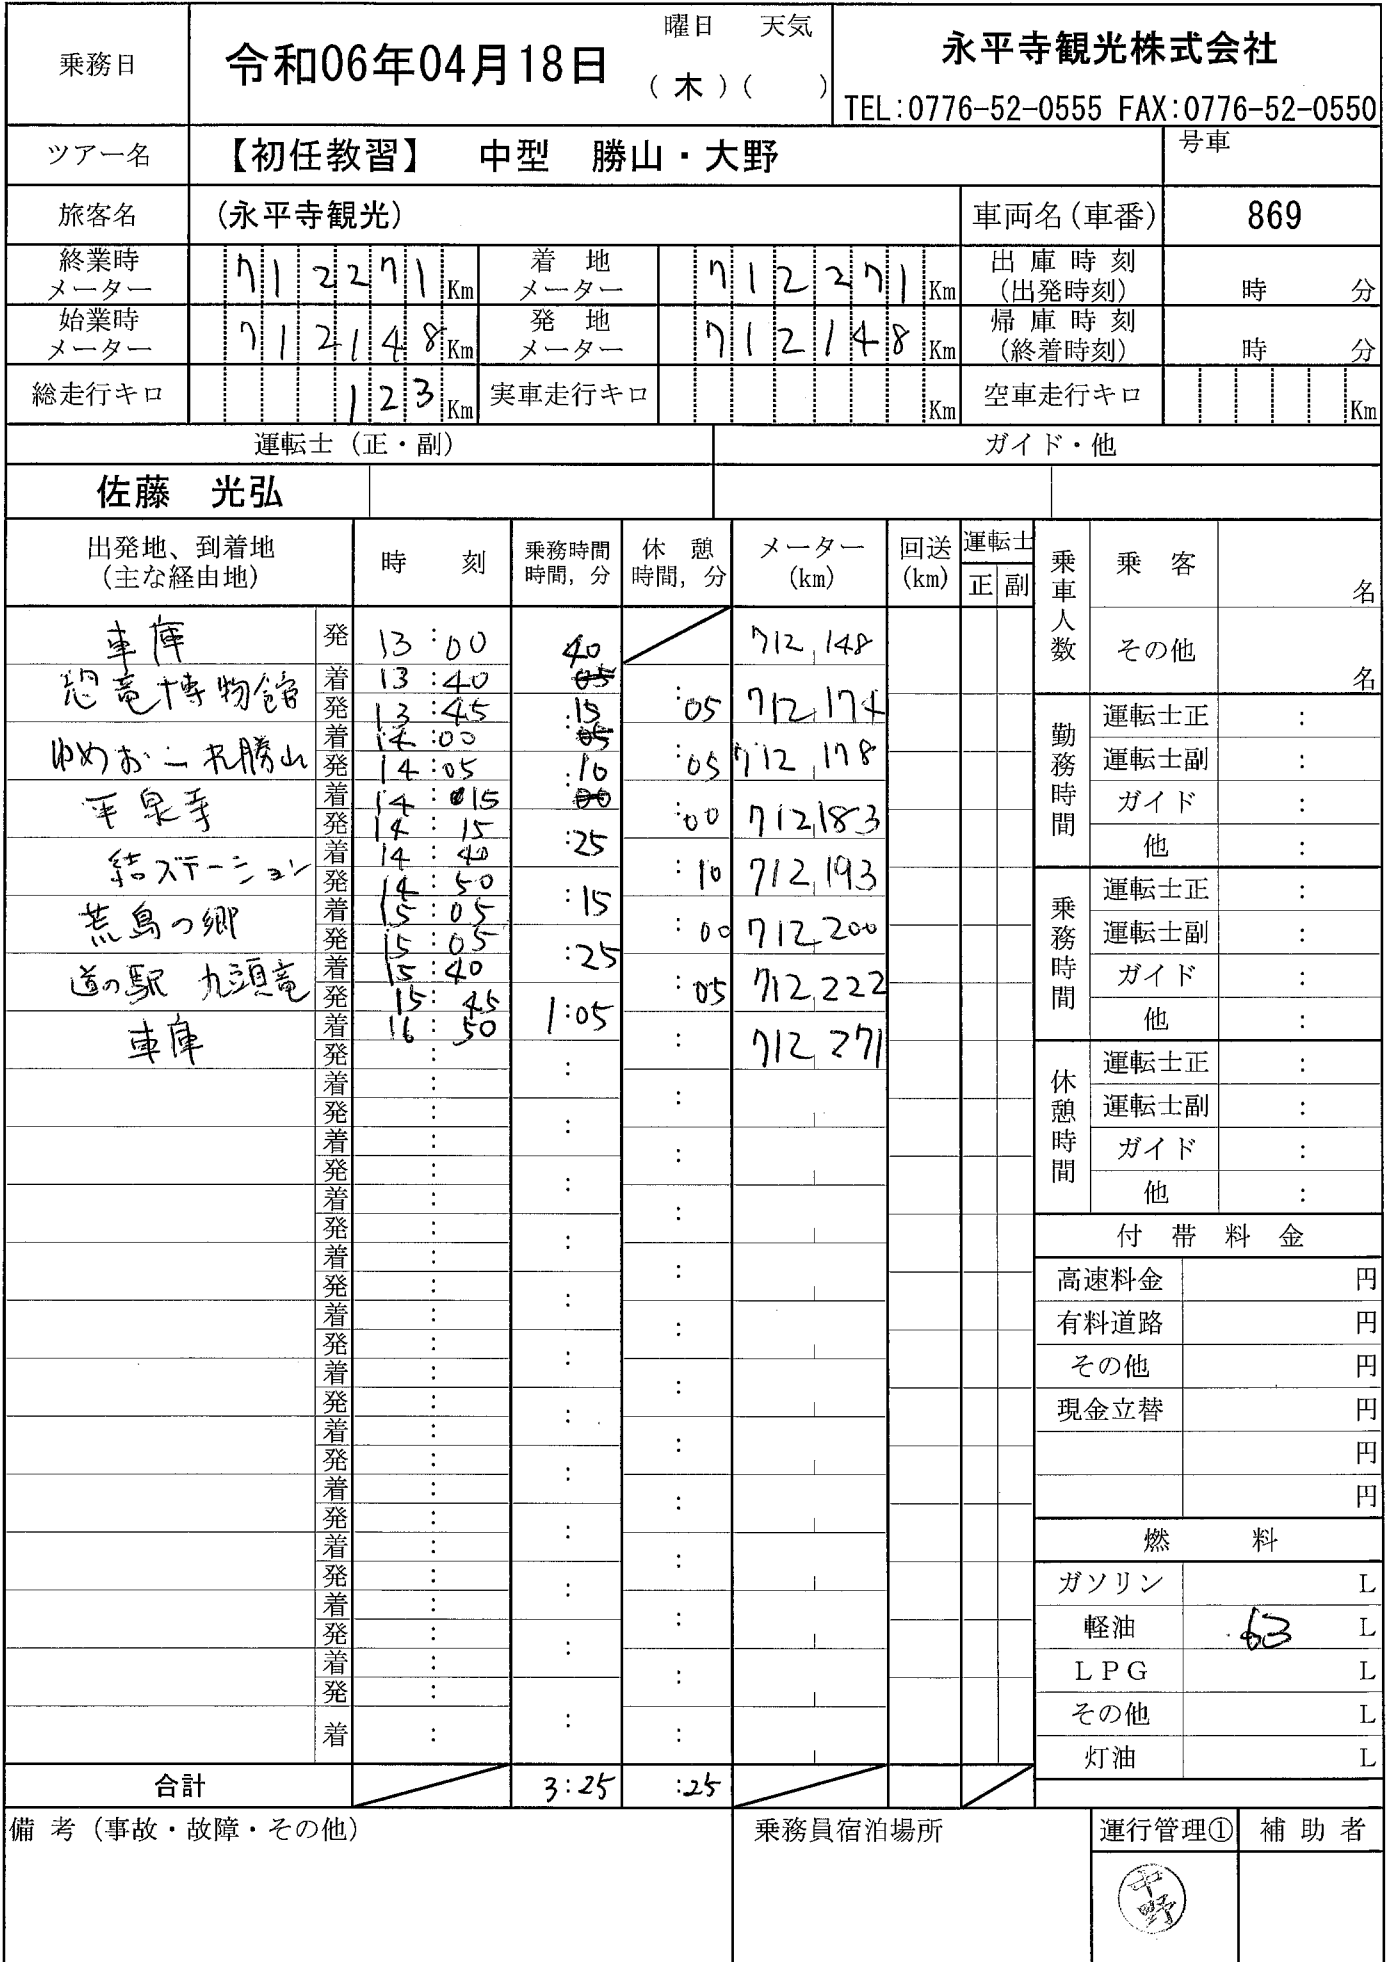 乗務日 令和06年04月18日 曜日 天気
(木)( )
永平寺観光株式会社
TEL:0776-52-0555 FAX:0776-52-0550
ツアー名 【初任教習】 中型 勝山・大野 号車
旅客名 (永平寺観光) 車両名(車番) 869
終業時メーター 712271 Km 着地メーター 712271 Km 出庫時刻(出発時刻) 時 分
始業時メーター 712148 Km 発地メーター 712148 Km 帰庫時刻(終着時刻) 時 分
総走行キロ 123 Km 実車走行キロ Km 空車走行キロ Km
運転士(正・副) ガイド・他
佐藤 光弘
出発地、到着地(主な経由地) 時刻 乗務時間 時間, 分 休憩 時間, 分 メーター(km) 回送(km) 運転士 正 副
車庫 発 13:00 40 712,148
恐竜博物館 着 13:40 05
発 13:45 :15 :05 712,174
ゆめおーれ勝山 着 14:00 05
発 14:05 :10 :05 712,178
平泉寺 着 14:15 00
発 14:15 :25 :00 712,183
結ステーション 着 14:40
発 14:50 :15 :10 712,193
荒島の郷 着 15:05
発 15:05 :25 :00 712,200
道の駅 九頭竜 着 15:40
発 15:45 1:05 :05 712,222
車庫 着 16:50 : 712,271
発 :
着 :
発 :
着 :
発 :
着 :
発 :
着 :
発 :
着 :
発 :
着 :
発 :
着 :
発 :
着 :
発 :
着 :
発 :
着 :
発 :
着 :
発 :
着 :
合計 3:25 :25
乗車人数 乗客 名
その他 名
勤務時間 運転士正 :
運転士副 :
ガイド :
他 :
乗務時間 運転士正 :
運転士副 :
ガイド :
他 :
休憩時間 運転士正 :
運転士副 :
ガイド :
他 :
付帯料金
高速料金 円
有料道路 円
その他 円
現金立替 円
円
円
燃料
ガソリン L
軽油 63 L
LPG L
その他 L
灯油 L
備考(事故・故障・その他) 乗務員宿泊場所 運行管理① 補助者